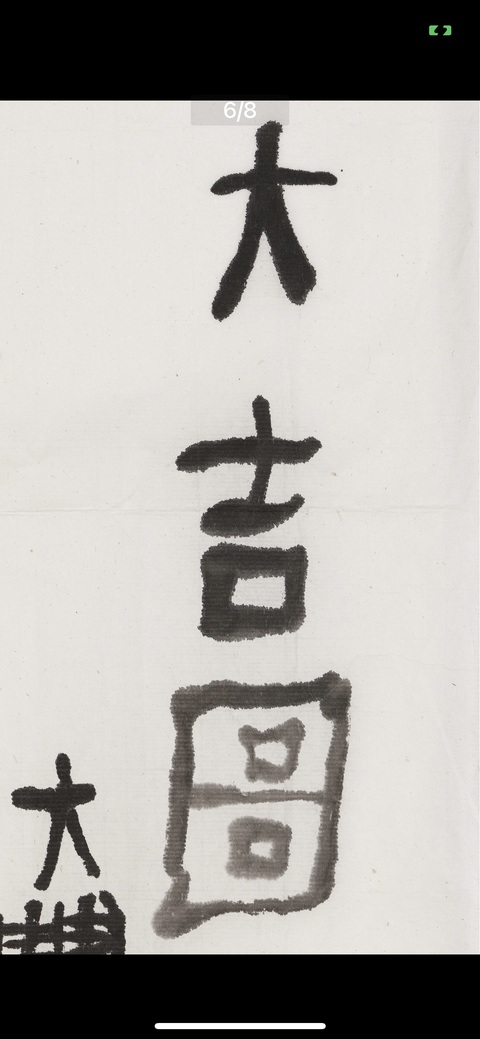 6/8
大吉圖
大